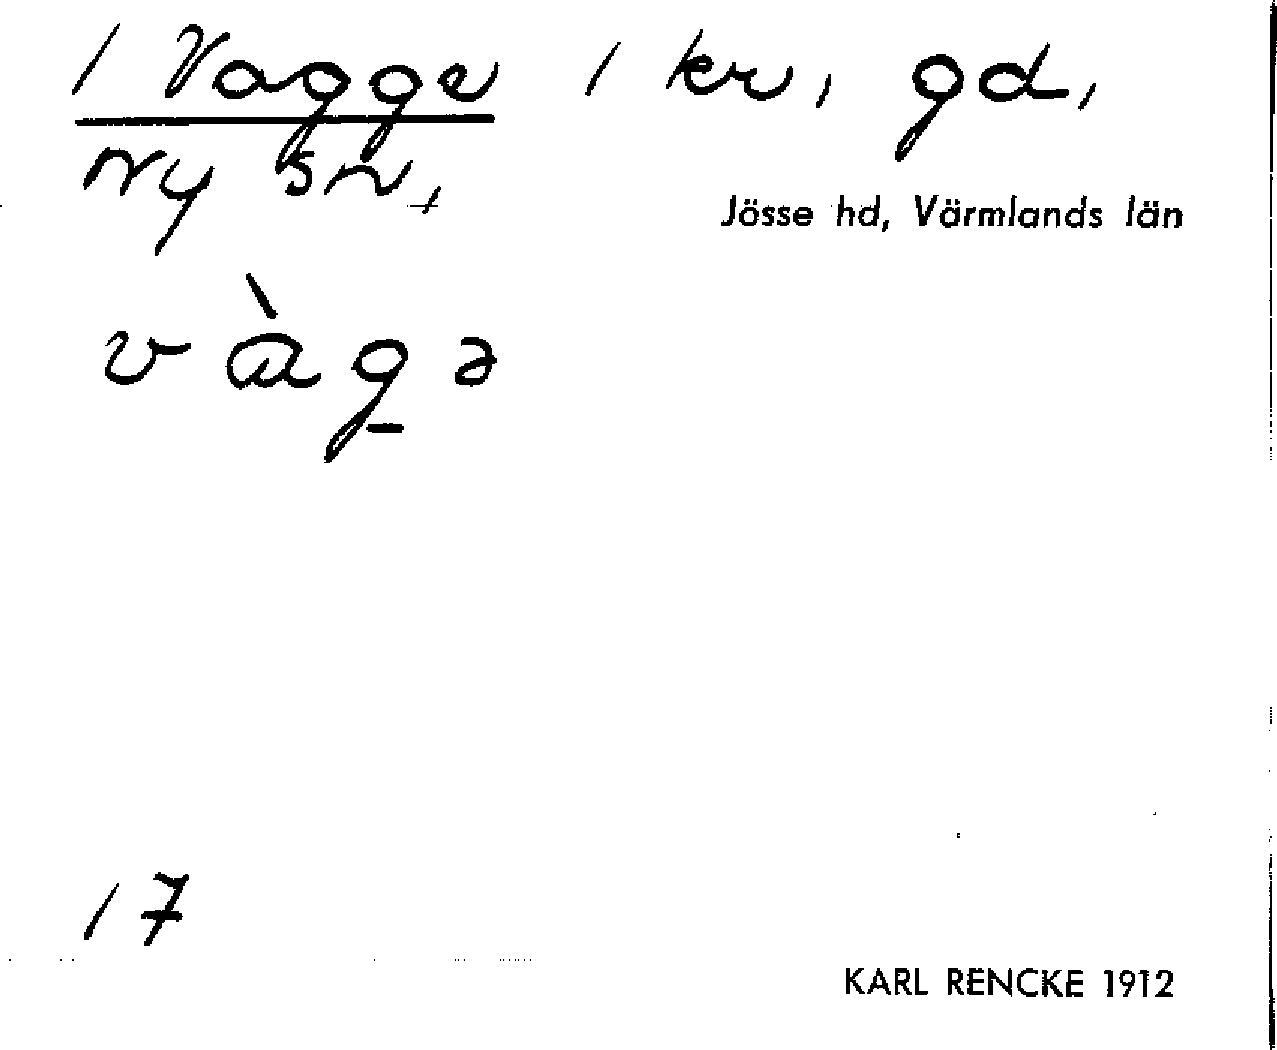 1 Vagge 1 kr, gd,
Ny sn,
Jösse hd, Värmlands län
v àgə
17
KARL RENCKE 1912